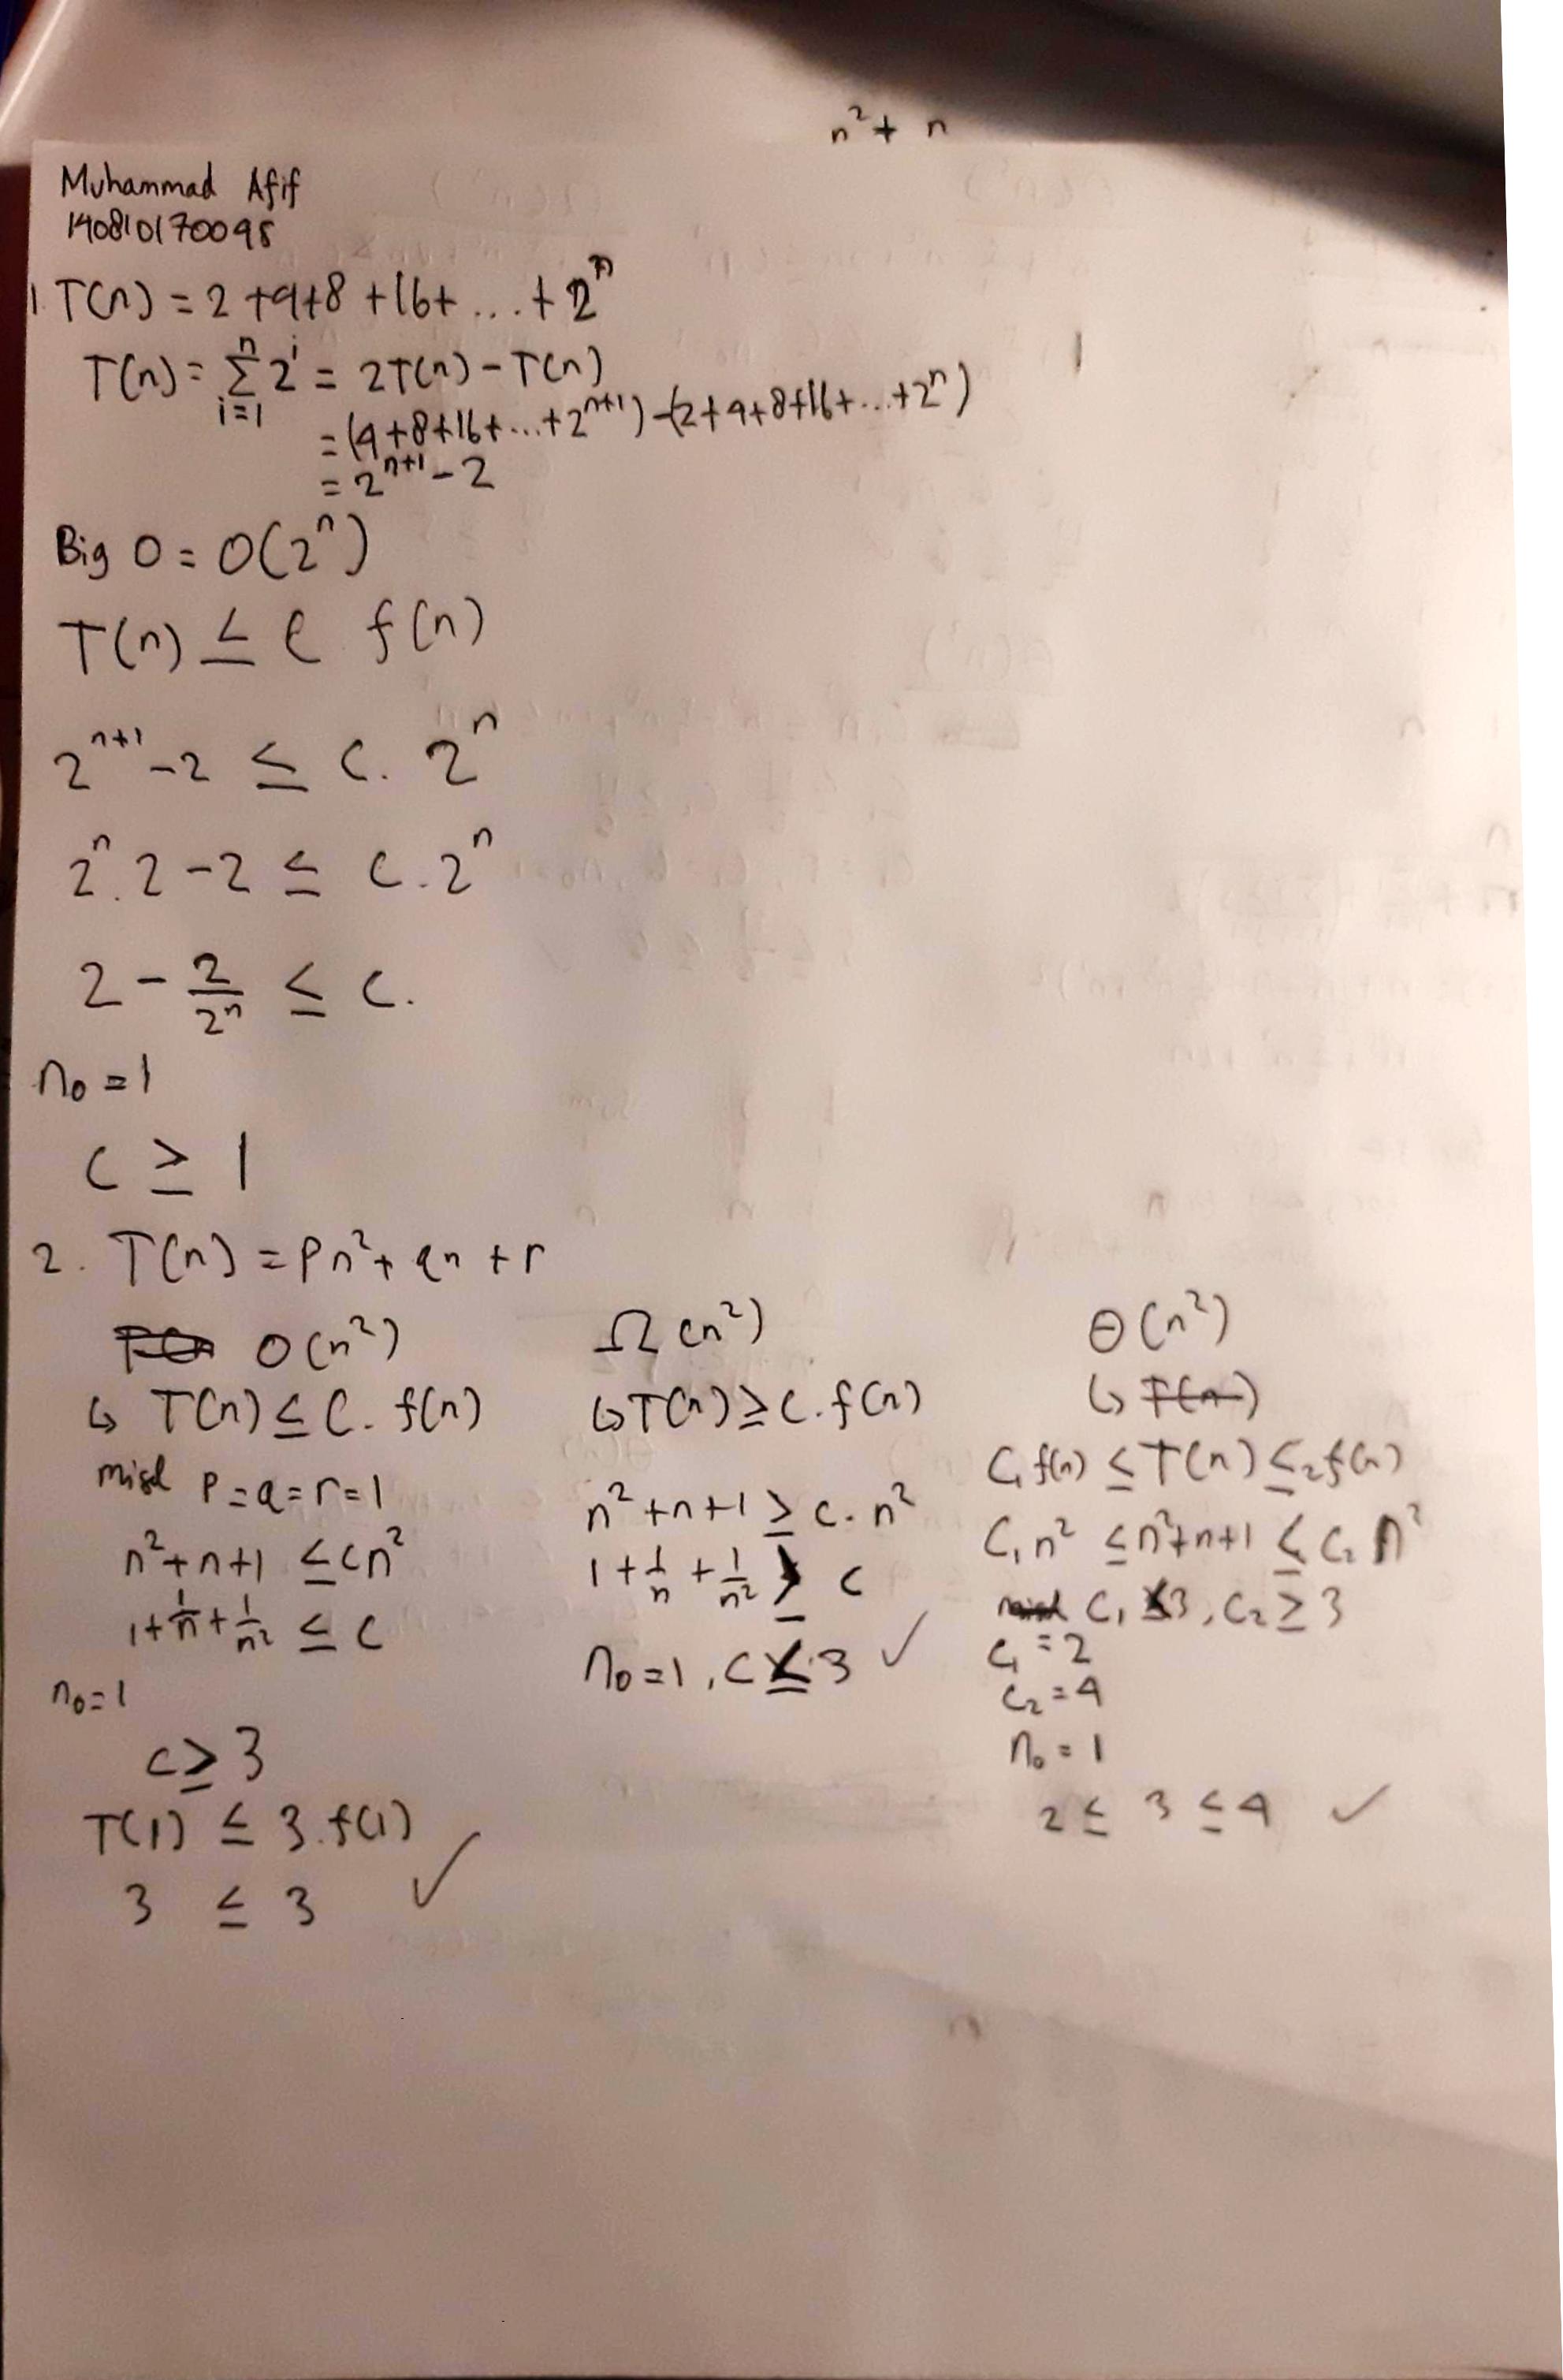 n² + n
Muhammad Afif
140810170095
1. T(n) = 2 + 4 + 8 + 16 + ... + 2ⁿ
T(n) = ∑ⁿᵢ₌₁ 2ⁱ = 2T(n) - T(n)
= (4 + 8 + 16 + ... + 2ⁿ⁺¹) - (2 + 4 + 8 + 16 + ... + 2ⁿ)
= 2ⁿ⁺¹ - 2
Big O = O(2ⁿ)
T(n) ≤ C f(n)
2ⁿ⁺¹ - 2 ≤ C. 2ⁿ
2ⁿ. 2 - 2 ≤ C. 2ⁿ
2 - 2/2ⁿ ≤ C.
n₀ = 1
C ≥ 1
2. T(n) = Pn² + qn + r
O(n²)
↳ T(n) ≤ C. f(n)
misl P = q = r = 1
n² + n + 1 ≤ cn²
1 + 1/n + 1/n² ≤ C
n₀ = 1
C ≥ 3
T(1) ≤ 3. f(1)
3 ≤ 3 ✓
Ω(n²)
↳ T(n) ≥ C. f(n)
n² + n + 1 ≥ C. n²
1 + 1/n + 1/n² ≥ C
n₀ = 1, C ≤ 3 ✓
Θ(n²)
↳ T(n)
C₁ f(n) ≤ T(n) ≤ C₂ f(n)
C₁n² ≤ n² + n + 1 ≤ C₂ n²
C₁ ≤ 3, C₂ ≥ 3
C₁ = 2
C₂ = 4
n₀ = 1
2 ≤ 3 ≤ 4 ✓